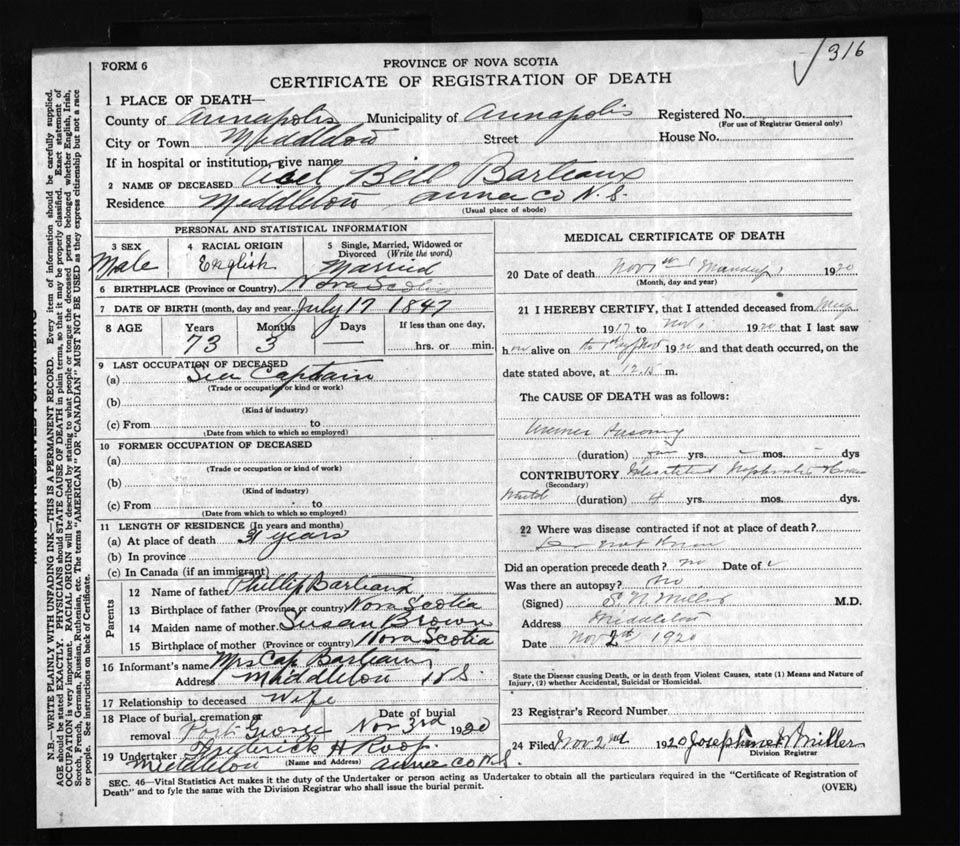 316
FORM 6
PROVINCE OF NOVA SCOTIA
CERTIFICATE OF REGISTRATION OF DEATH
1 PLACE OF DEATH—
County of Annapolis Municipality of Annapolis Registered No.
(For use of Registrar General only)
City or Town Middleton Street House No.
If in hospital or institution, give name
2 NAME OF DECEASED Bell Barteaux
Residence Middleton Anna Co N.S.
(Usual place of abode)
PERSONAL AND STATISTICAL INFORMATION
3 SEX Male
4 RACIAL ORIGIN English
5 Single, Married, Widowed or Divorced (Write the word) Married
6 BIRTHPLACE (Province or Country) Nova Scotia
7 DATE OF BIRTH (month, day and year) July 17 1847
8 AGE Years Months Days If less than one day,
73 3 — hrs. or min.
9 LAST OCCUPATION OF DECEASED
(a) Sea Captain
(Trade or occupation or kind or work)
(b)
(Kind of industry)
(c) From to
(Date from which to which so employed)
10 FORMER OCCUPATION OF DECEASED
(a)
(Trade or occupation or kind of work)
(b)
(Kind of industry)
(c) From to
(Date from which to which so employed)
11 LENGTH OF RESIDENCE (In years and months)
(a) At place of death 31 years
(b) In province
(c) In Canada (if an immigrant)
Parents
12 Name of father Phillip Barteaux
13 Birthplace of father (Province or country) Nova Scotia
14 Maiden name of mother Susan Brown
15 Birthplace of mother (Province or country) Nova Scotia
16 Informant's name Mrs Cap Barteaux
Address Middleton N S.
17 Relationship to deceased Wife
18 Place of burial, cremation or removal Port George Date of burial Nov 3rd 1920
19 Undertaker Frederick H Roop
(Name and Address)
Middleton Anna Co N.S.
MEDICAL CERTIFICATE OF DEATH
20 Date of death Nov 1st 1920
(Month, day and year)
21 I HEREBY CERTIFY, that I attended deceased from
1917 to Nov 1 1920 that I last saw
h alive on Nov 1920 and that death occurred, on the
date stated above, at 12.15 m.
The CAUSE OF DEATH was as follows:
(duration) yrs. mos. dys
CONTRIBUTORY
(Secondary)
(duration) 4 yrs. mos. dys.
22 Where was disease contracted if not at place of death?
not know
Did an operation precede death? no Date of
Was there an autopsy? no
(Signed) Miller M.D.
Address Middleton
Date Nov 2nd 1920
State the Disease causing Death, or in death from Violent Causes, state (1) Means and Nature of Injury, (2) whether Accidental, Suicidal or Homicidal.
23 Registrar's Record Number
24 Filed Nov 2nd 1920 Miller
Division Registrar
SEC. 46—Vital Statistics Act makes it the duty of the Undertaker or person acting as Undertaker to obtain all the particulars required in the "Certificate of Registration of
Death" and to fyle the same with the Division Registrar who shall issue the burial permit.
(OVER)
N.B.—WRITE PLAINLY WITH UNFADING INK—THIS IS A PERMANENT RECORD. Every item of information should be carefully supplied.
AGE should be stated EXACTLY. PHYSICIANS should STATE CAUSE OF DEATH in plain terms, so that it may be properly classified. Exact statement of
OCCUPATION is very important. RACIAL ORIGIN will be described by stating to what people or tongue the deceased person belonged whether English, Irish,
Scotch, French, German, Russian, Ruthenian, etc. The terms "AMERICAN" OR "CANADIAN" MUST NOT BE USED as they express citizenship but not a race
or people. See instructions on back of Certificate.